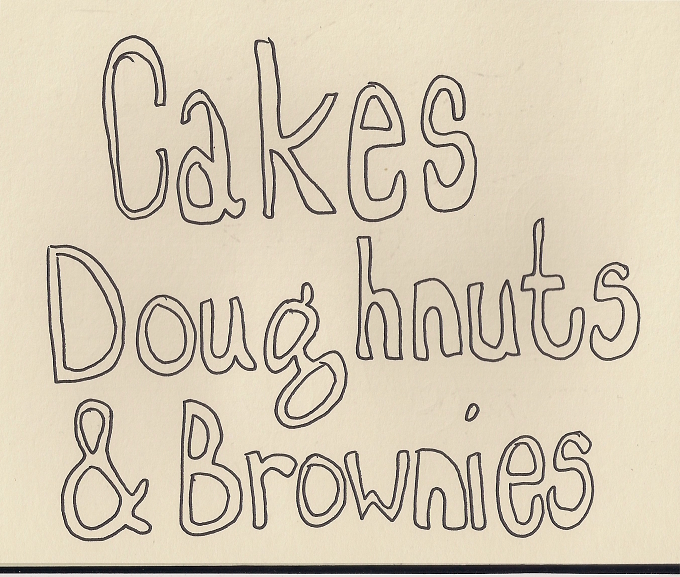 Cakes
Doughnuts
& Brownies